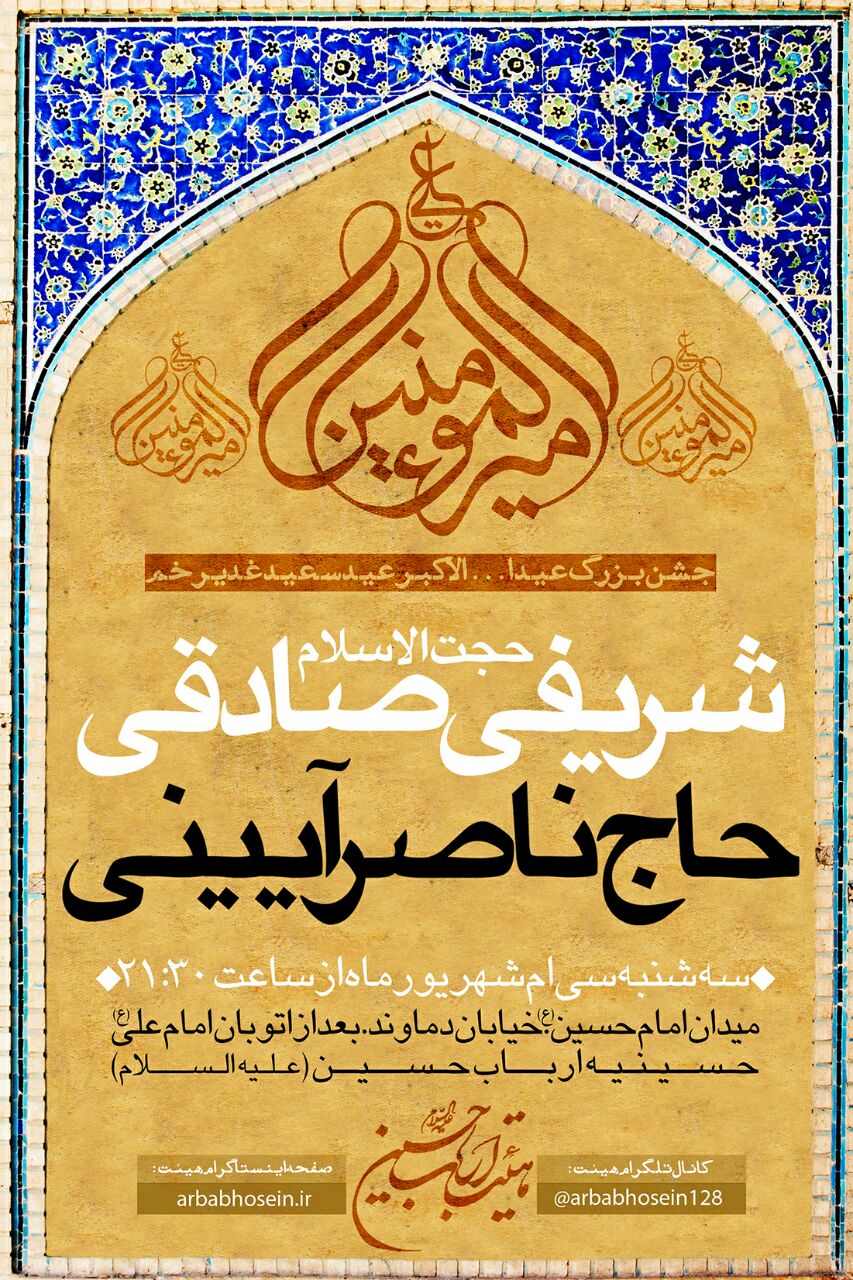 علی
امیرالمؤمنین
علی
امیرالمؤمنین
علی
امیرالمؤمنین
جشن بزرگ عیدا... الاکبر عید سعید غدیر خم
حجت الاسلام
شریفی صادقی
حاج ناصر آیینی
سه شنبه سی ام شهریور ماه از ساعت ۲۱:۳۰
میدان امام حسین(ع)، خیابان دماوند. بعد از اتوبان امام علی(ع)
حسینیه ارباب حسین (علیه السلام)
هیئت ارباب حسین علیه السلام
کانال تلگرام هیئت:
@arbabhosein128
صفحه اینستاگرام هیئت:
arbabhosein.ir